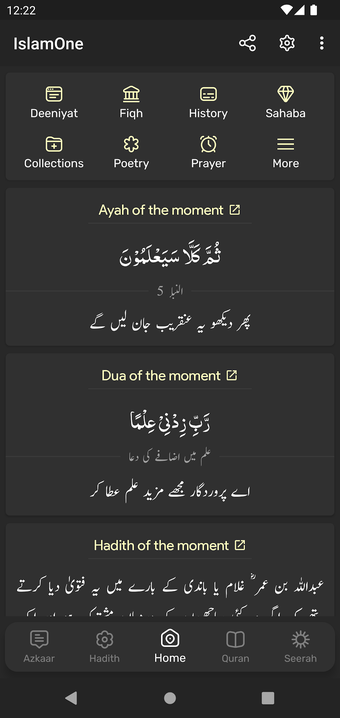 12:22
IslamOne
Deeniyat Fiqh History Sahaba
Collections Poetry Prayer More
Ayah of the moment
ثُمَّ كَلَّا سَيَعْلَمُوْنَ
النبإ 5
پھر دیکھو یہ عنقریب جان لیں گے
Dua of the moment
رَّبِّ زِدْنِیْ عِلْمًا
علم میں اضافے کی دعا
اے پروردگار مجھے مزید علم عطا کر
Hadith of the moment
عبداللہ بن عمر ؓ غلام یا باندی کے بارے میں یہ فتویٰ دیا کرتے
Azkaar Hadith Home Quran Seerah